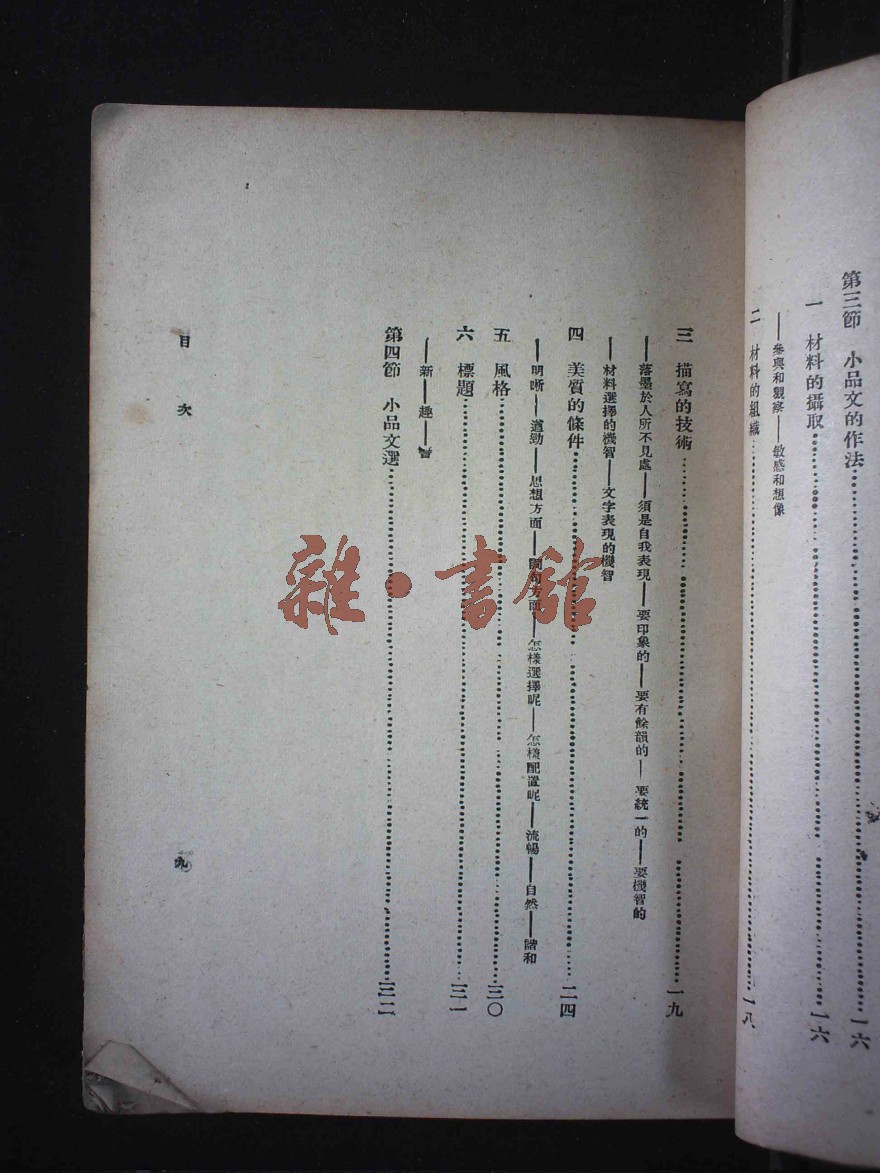 第三節　小品文的作法……一六
一　材料的攝取……一六
——參與和觀察——敏感和想像
二　材料的組織……一八
三　描寫的技術……一九
——落墨於人所不見處——須是自我表現——要印象的——要有餘韻的——要統一的——要機智的
——材料選擇的機智——文字表現的機智
四　美質的條件……二四
——明晰——遒勁——思想方面——詞句方面——怎樣選擇呢——怎樣配置呢——流暢——自然——諧和
五　風格……三〇
六　標題……三一
——新——趣——
第四節　小品文選……三二
目　次
九
雜·書館